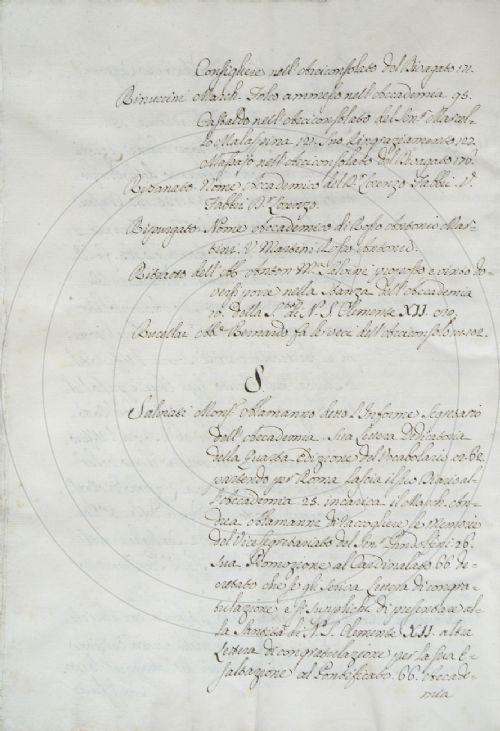 Consigliere nell'Arciconsolato del Bisagato 171.
Rinuccini March. Folco ammesso nell'Accademia 95.
Castaldo nell'Arciconsolato del Sen.r Marcel-
lo Malaspina 121. Suo Ringraziamento 122.
Massajo nell'Arciconsolato del 176.
Risanato Nome Accademico del D.r Lorenzo Fabbri. V.
Fabbri D.r Lorenzo.
Ripurgato Nome Accademico di Rosso Antonio Mar-
tini. V. Martini Rosso Antonio.
Ritratto dell'Ab. Anton M.a Salvini vinto do-
versi porre nella Stanza dell'Accademia
10. della S.tà di N. S. Clemente XII. 010.
Rucellai Ab.e Bernardo fa le veci dell'Arciconsolo 102.
S.
Salviati Mons.r Alamanno detto l'Informe Segretario
dell'Accademia. Sua Lettera Dedicatoria
della Quarta Edizione del Vocabolario
partendo per Roma lascia il suo Diario al-
l'Accademia 25. incarica il March. An-
drea Alamanni di raccogliere le Memorie
del Vicesegretariato del Sen.r 26.
Sua Promozione al Cardinalato 66 de-
cretato che se gli scriva Lettera di congra-
tulazione e si supplichi di presentare al-
la Santità di N. S. Clemente XII. altra
Lettera di congratulazione per la sua E-
saltazione al Pontificato. 66. Accade-
mia